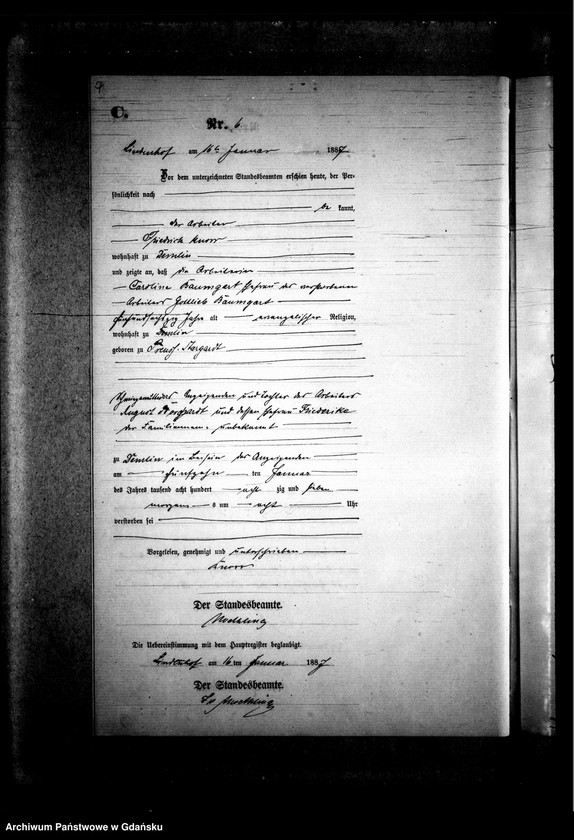 C.
Nr. 6.
Lindenhof am 16ten Januar 1887
Vor dem unterzeichneten Standesbeamten erschien heute, der Per-
sönlichkeit nach
be kannt,
der Arbeiter
Friedrich Knorr
wohnhaft zu Demlin
und zeigte an, daß die Arbeiterin
Caroline Baumgart Ehefrau des verstorbenen
Arbeiters Gottlieb Baumgart
fünfundsechzig Jahre alt evangelischer Religion,
wohnhaft zu Demlin
geboren zu Preuß. Stargardt
Anzeigenden und Tochter des Arbeiters
August und dessen Ehefrau Friederike
der Familienname unbekannt
zu Demlin im Beisein des Anzeigenden
am fünfzehn ten Januar
des Jahres tausend acht hundert acht zig und sieben
morgens um acht Uhr
verstorben sei
Vorgelesen, genehmigt und unterschrieben
Knorr
Der Standesbeamte.
Die Uebereinstimmung mit dem Hauptregister beglaubigt.
Lindenhof am 16 ten Januar 1887
Der Standesbeamte.
Archiwum Państwowe w Gdańsku